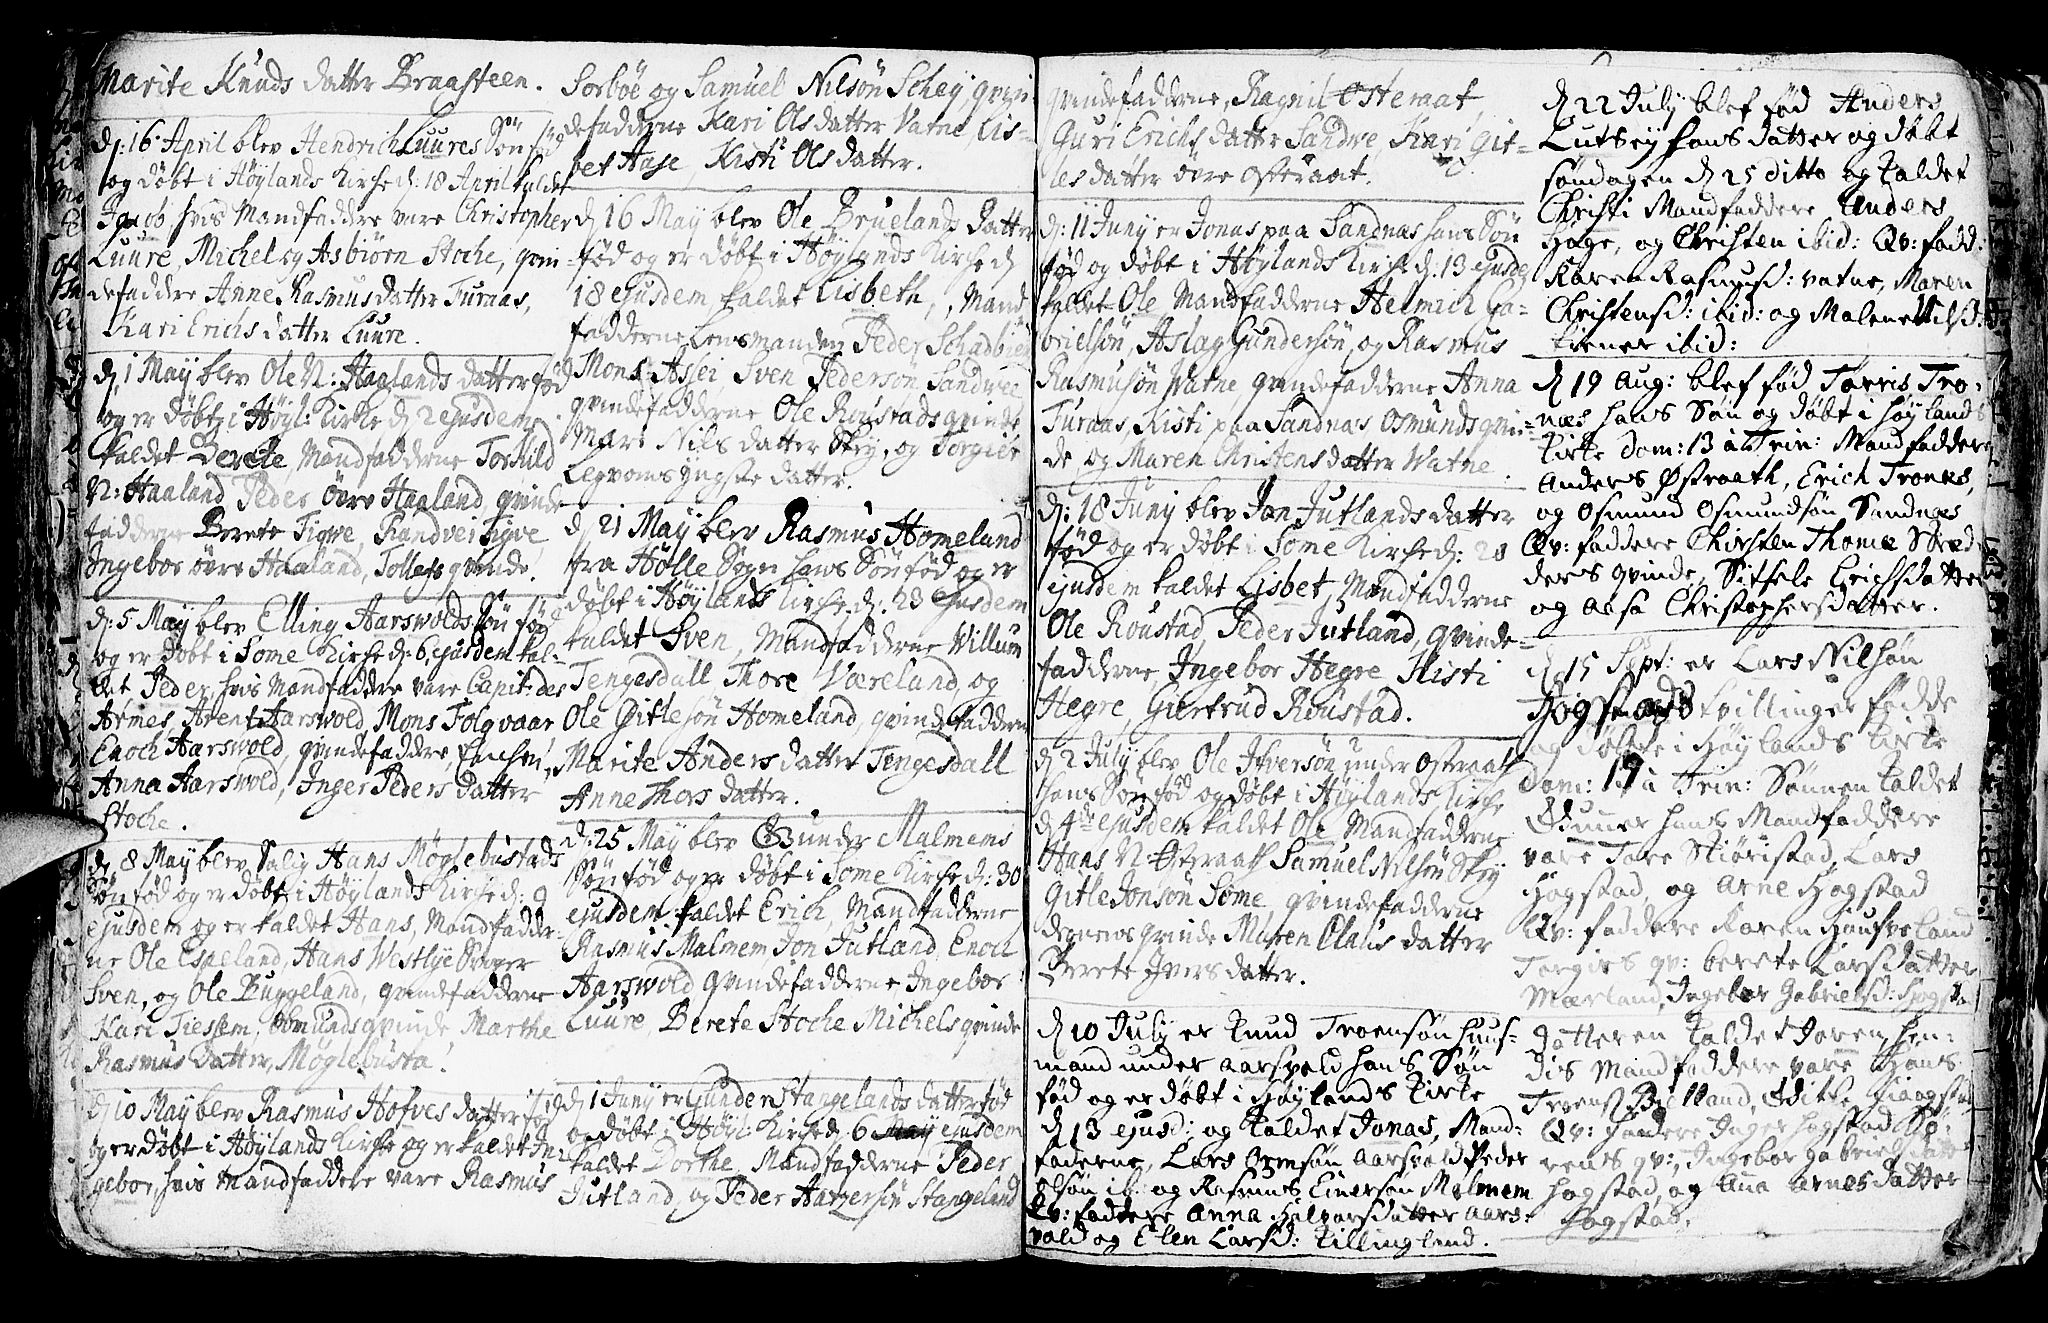 Marite Knuds datter Braasteen.
dj: 16 April blev Hendrich Luures Sön fød
og døbt i Höylands Kirche d: 18 April kaldet
Jacob hvis Mandfaddre vare Christopher
Luure, Michel og Asbiörn Stoche, qvin-
defaddre Anne Rasmusdatter Turaas,
Kari Erichs datter Luure.
dj 1 May blev Ole N: Haalands datter fød
og er døbt i Höyl: Kirke dj 2 ejusdem
kaldet Berete, Mandfadderne Torkild
N: Haaland, Peder övre Haaland, qvinde
fadderne Berete Figve, Randvei Figve,
Ingebor övre Haaland, Tollefs qvinde.
dj: 5 May blev Elling Aarswolds Sön fød
og er døbt i Some Kirche d: 6 ejusdem kal-
det Peder, hvis Mandfaddre vare Capit: des
Armes Arent Aarswold, Mons Folqvaar
Enoch Aarswold, qvindefaddre,
Anna Aarswold, Inger Peders datter
Stoche.
dj 8 May blev Salig Hans Möglebustads
Sön fød og er døbt i Höylands Kirche d: 9
ejusdem og er kaldet Hans, Mandfadder-
ne Ole Espeland, Hans Westlye
Sven, og Ole Buggeland, qvindefadderne
Kari Tiessem, Osmunds qvinde Marthe
Rasmus Datter, Möglebusta.
dj 10 May blev Rasmus Hofves datter fød
og er døbt i Höylands Kirche og er kaldet In-
gebor, hvis Mandfaddre vare Rasmus
Sorböe og Samuel Nilsön Schey, qvin-
defadderne Kari Olsdatter Vatne, Lis-
bet Aase, Kisti Olsdatter.
dj 16 May blev Ole Bruelands Datter
fød og er døbt i Höylands Kirche dj
18 ejusdem kaldet Lisbeth, Mand
fadderne Lensmanden Peder Schadbierg
Mons: Assei, Sven Pedersön Sandvee
qvindefadderne Ole Roustads qvinde
Mari Nils datter Skey, og Torgier
Legvoms yngste datter.
dj 21 May blev Rasmus Homeland
fra Hölle Sogn hans Sön fød og er
døbt i Höylands Kirche d: 23 ejusdem
kaldet Sven, Mandfadderne Willum
Tengesdall Thore Væreland, og
Ole Gitlesön Homeland, qvindefadderne
Marite Anders datter Tengesdall
Anne Thors datter.
d: 25 May blev Gunder Malmems
Sön fød og er døbt i Some Kirche d: 30
ejusdem kaldet Erich, Mandfadderne
Rasmus Malmem, Jon Jutland, Enoch
Aarswold qvindefadderne, Ingebor
Luure, Berete Stoche Michels qvinde
dj 1 Juny er Gunder Stangelands datter fød
og døbt i Höyl: Kirche dj 6 ejusdem
kaldet Dorthe, Mandfadderne Peder
Jutland, og Peder Aagesön Stangeland
qvindefadderne, Ragnil Osteraat,
Guri Erichs datter Sandve, Kari Git-
les datter övre Osteraat.
dj: 11 Juny er Jonas paa Sandnæs hans Sön
fød og døbt i Höylands Kirche d: 13 ejusdem
kaldet Ole Mandfadderne Helmich Ga-
brielsön, Aslag Gundersön, og Rasmus
Rasmusön Vatne, qvindefadderne Anna
Turaas, Kisti paa Sandnæs Osmunds qvin-
de, og Maren Christensdatter Watne.
dj: 18 Juny blev Jon Jutlands datter
fød og er døbt i Some Kirche d: 20
ejusdem kaldet Lisbet, Mandfadderne
Ole Roustad, Peder Jutland, qvinde-
fadderne, Ingebor Hegre, Kisti
Hegre, Giertrud Roustad.
dj 2 July blev Ole Iversön under Osteraat
hans Sön fød og døbt i Höylands Kirche
d 4de ejusdem kaldet Ole Mandfadderne
Hans N: Osteraat Samuel Nilsön Skey
Gitle Jonsön Some, qvindefadderne
degnens qvinde Maren Claus datter
Berete Ivers datter.
dj 10 July er Knud Troensön Huus-
mand under Aarsvold hans Sön
fød og er døbt i Höylands Kirke
dj 13 ejusd: og kaldet Jonas, Mand-
faderne, Lars Ormsön Aarsvold Peder
Olsön ib: og Rasmus Einersön Malmem
Qv: faddere Anna Halvorsdatter Aars-
vold og Elen Larsd: Killingland.
dj 22 July blef fød Anders
Lutsey hans datter og døbt
søndagen dj 25 ditto og kaldet
Christi Mandfaddere Anders
Hage, og Christen ibid: Qv: fadd:
Karen Rasmusd: Vatne, Maren
Christensd: ibid: og Malene Nilsd:
tiener ibid:
dj 19 Aug: blef fød Torris Tro-
næs hans Søn og døbt i Høylands
Kirke Dom: 13 a Trin: Mandfaddere
Anders Østraath, Erich Tronæs,
og Osmund Osmundsøn Sandnæs
Qv: faddere Chirsten Thomæ Skræd-
ders qvinde, Sithele Erichsdatter
og Aasa Christophersdatter.
dj 15 Sept: er Lars Nilsøn
Hogstads tvillinger fødde
og døbte i Høylands Kirke
Dom: 17 a Trin: Sønnen kaldet
Gunner hans Mandfaddere
vare Tore Skiörestad, Lars
Hogstad, og Arne Hogstad
Qv: faddere Karen Haufveland
Torgiers qv: berete Larsdatter
Mæland, Ingebor Gabrielsd: Hogsta
Datteren kaldet Joren, hen-
dis Mandfaddere vare Hans
Troens Bielland,
Qv: faddere Inger Hogstad Sö-
rens qv:, Ingebor Gabrielsdatter
Hogstad, og Ana Arnes datter
Hogstad.